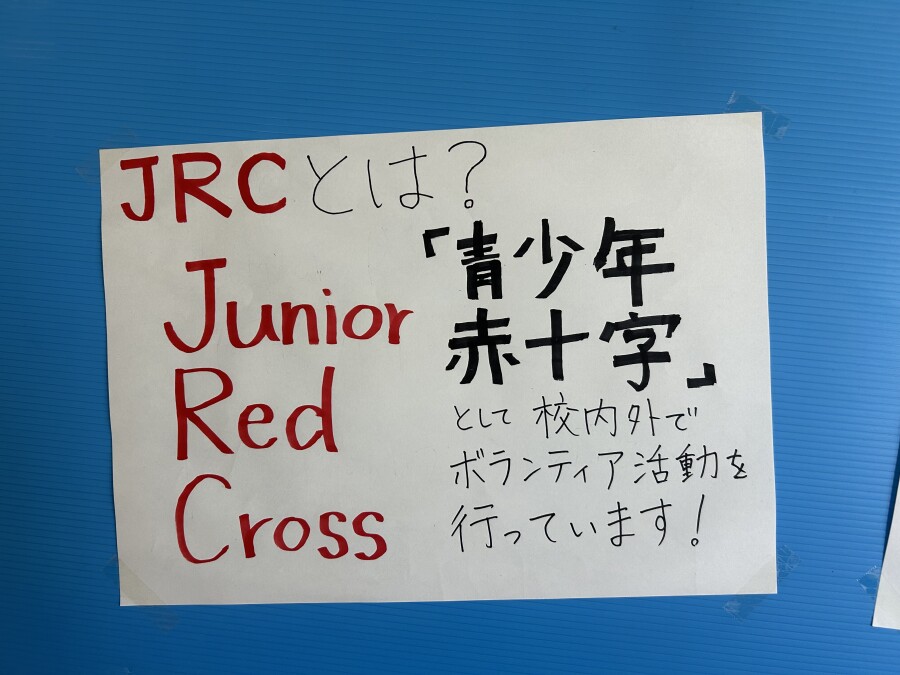 JRCとは?
Junior
Red
Cross
「青少年
赤十字」
として校内外で
ボランティア活動を
行っています!